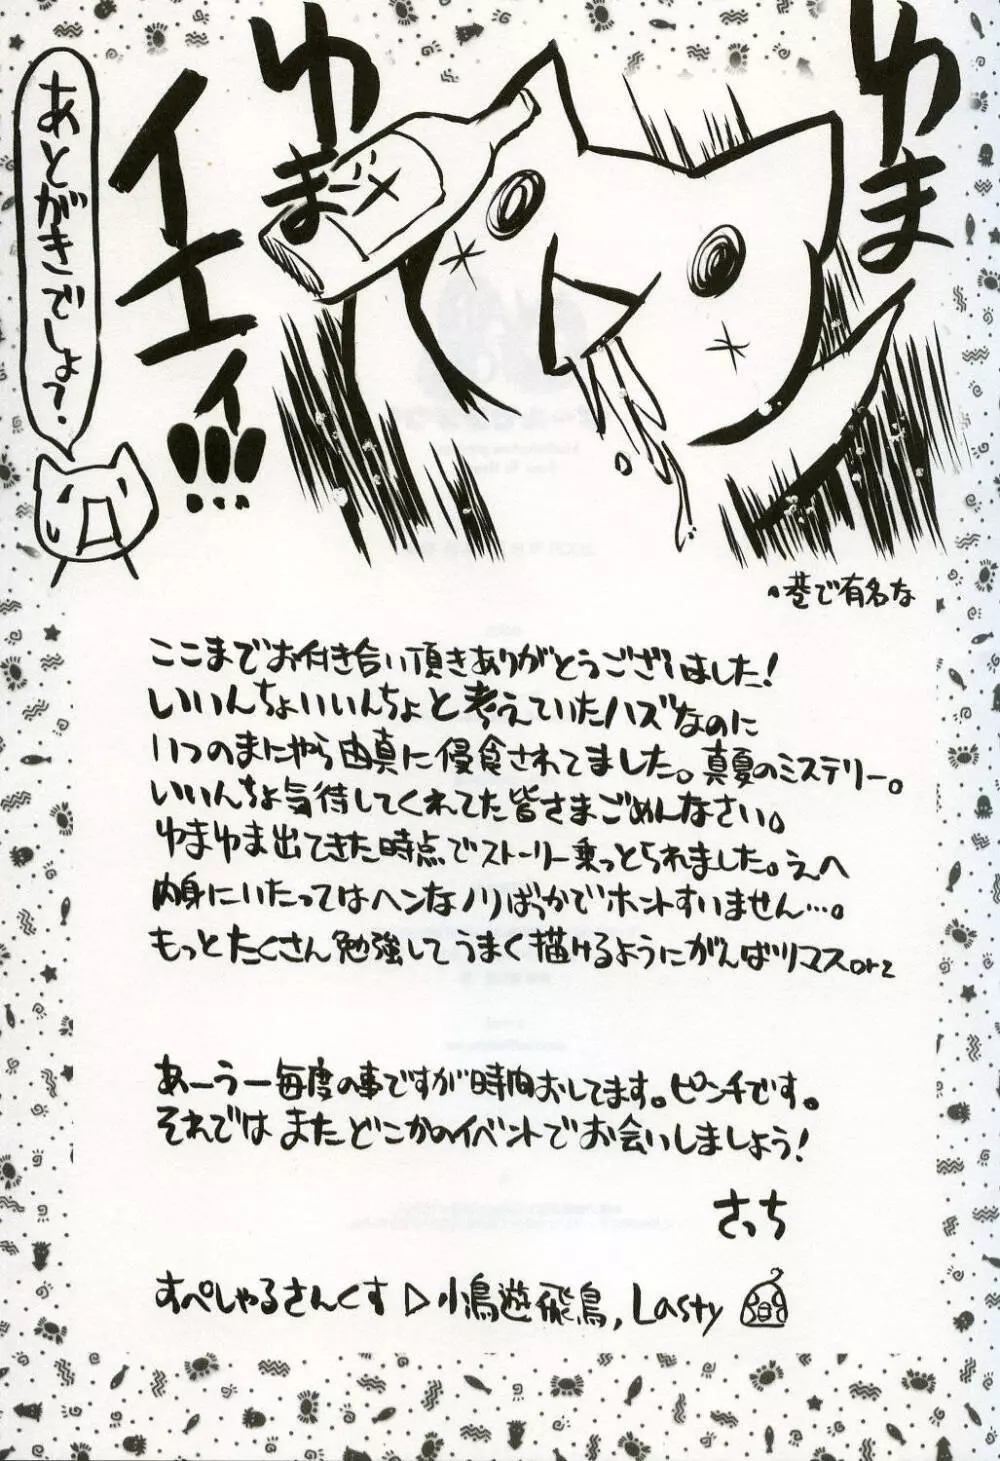 ゆま
ゆま
イエーィ!!!
あとがきでしょ?
巷で有名な
ここまでお付き合い頂きありがとうございました!
いいんちょいいんちょと考えていたハズなのに
いつのまにやら由真に侵食されてました。真夏のミステリー。
いいんちょ気待してくれてた皆さまごめんなさい。
ゆまゆま出てきた時点でストーリー乗っとられました。えへ
内身にいたってはヘンなノリばっかでホントすいません…。
もっとたくさん勉強してうまく描けるようにがんばリマスorz
あーうー毎度の事ですが時間おしてます。ピンチです。
それではまたどこかのイベントでお会いしましょう!
さっち
すぺしゃるさんくす▷小鳥遊飛鳥, Lasty